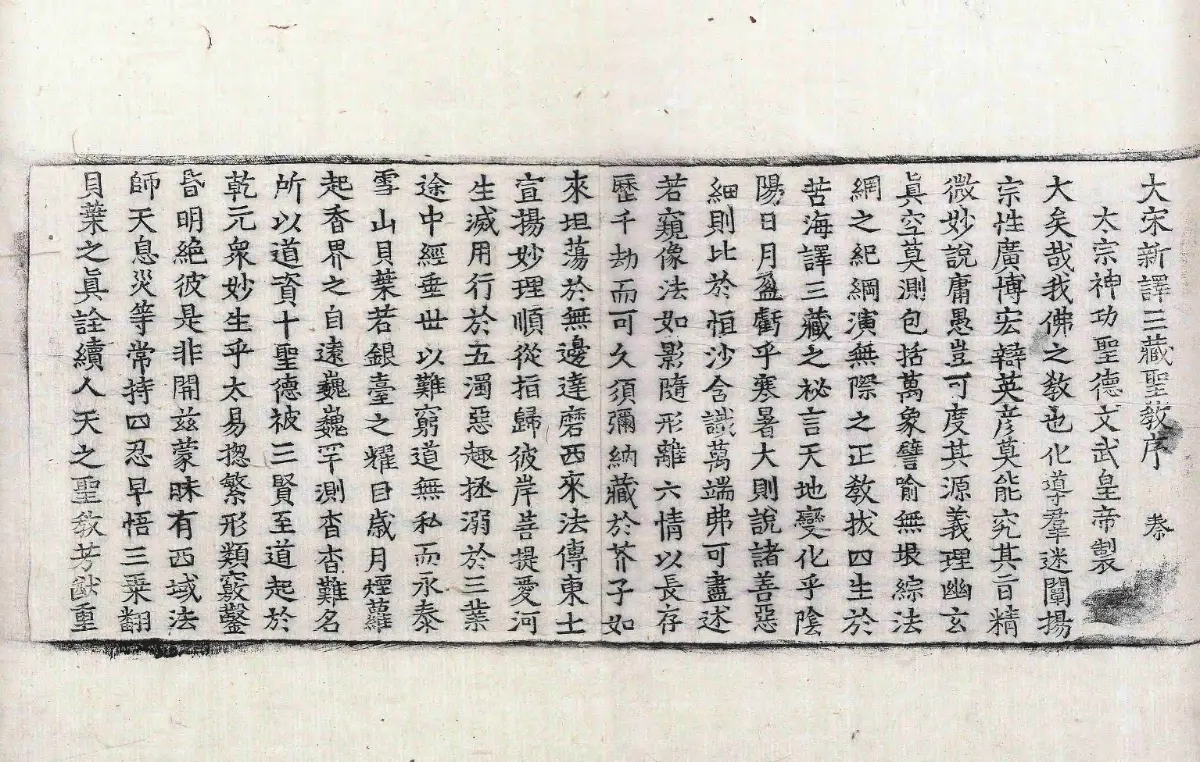 大宋新譯三藏聖教序 泰
太宗神功聖德文武皇帝製
大矣哉我佛之教也化導羣迷闡揚
宗性廣博宏辯英彥莫能究其旨精
微妙說庸愚豈可度其源義理幽玄
眞空莫測包括萬象譬喻無垠綜法
網之紀綱演無際之正教拔四生於
苦海譯三藏之秘言天地變化乎陰
陽日月盈虧乎寒暑大則說諸善惡
細則比於恒沙含識萬端弗可盡述
若窺像法如影隨形離六情以長存
歷千劫而可久須彌納藏於芥子如
來坦蕩於無邊達磨西來法傳東土
宣揚妙理順從指歸彼岸菩提愛河
生滅用行於五濁惡趣拯溺於三業
途中經垂世以難窮道無私而永泰
雪山貝葉若銀臺之耀目歲月煙蘿
起香界之自遠巍巍罕測杳杳難名
所以道資十聖德被三賢至道起於
乾元衆妙生乎太易揔繁形類竅鑿
昏明絕彼是非開兹蒙昧有西域法
師天息災等常持四忍早悟三乗翻
貝葉之眞詮續人天之聖教芳猷重